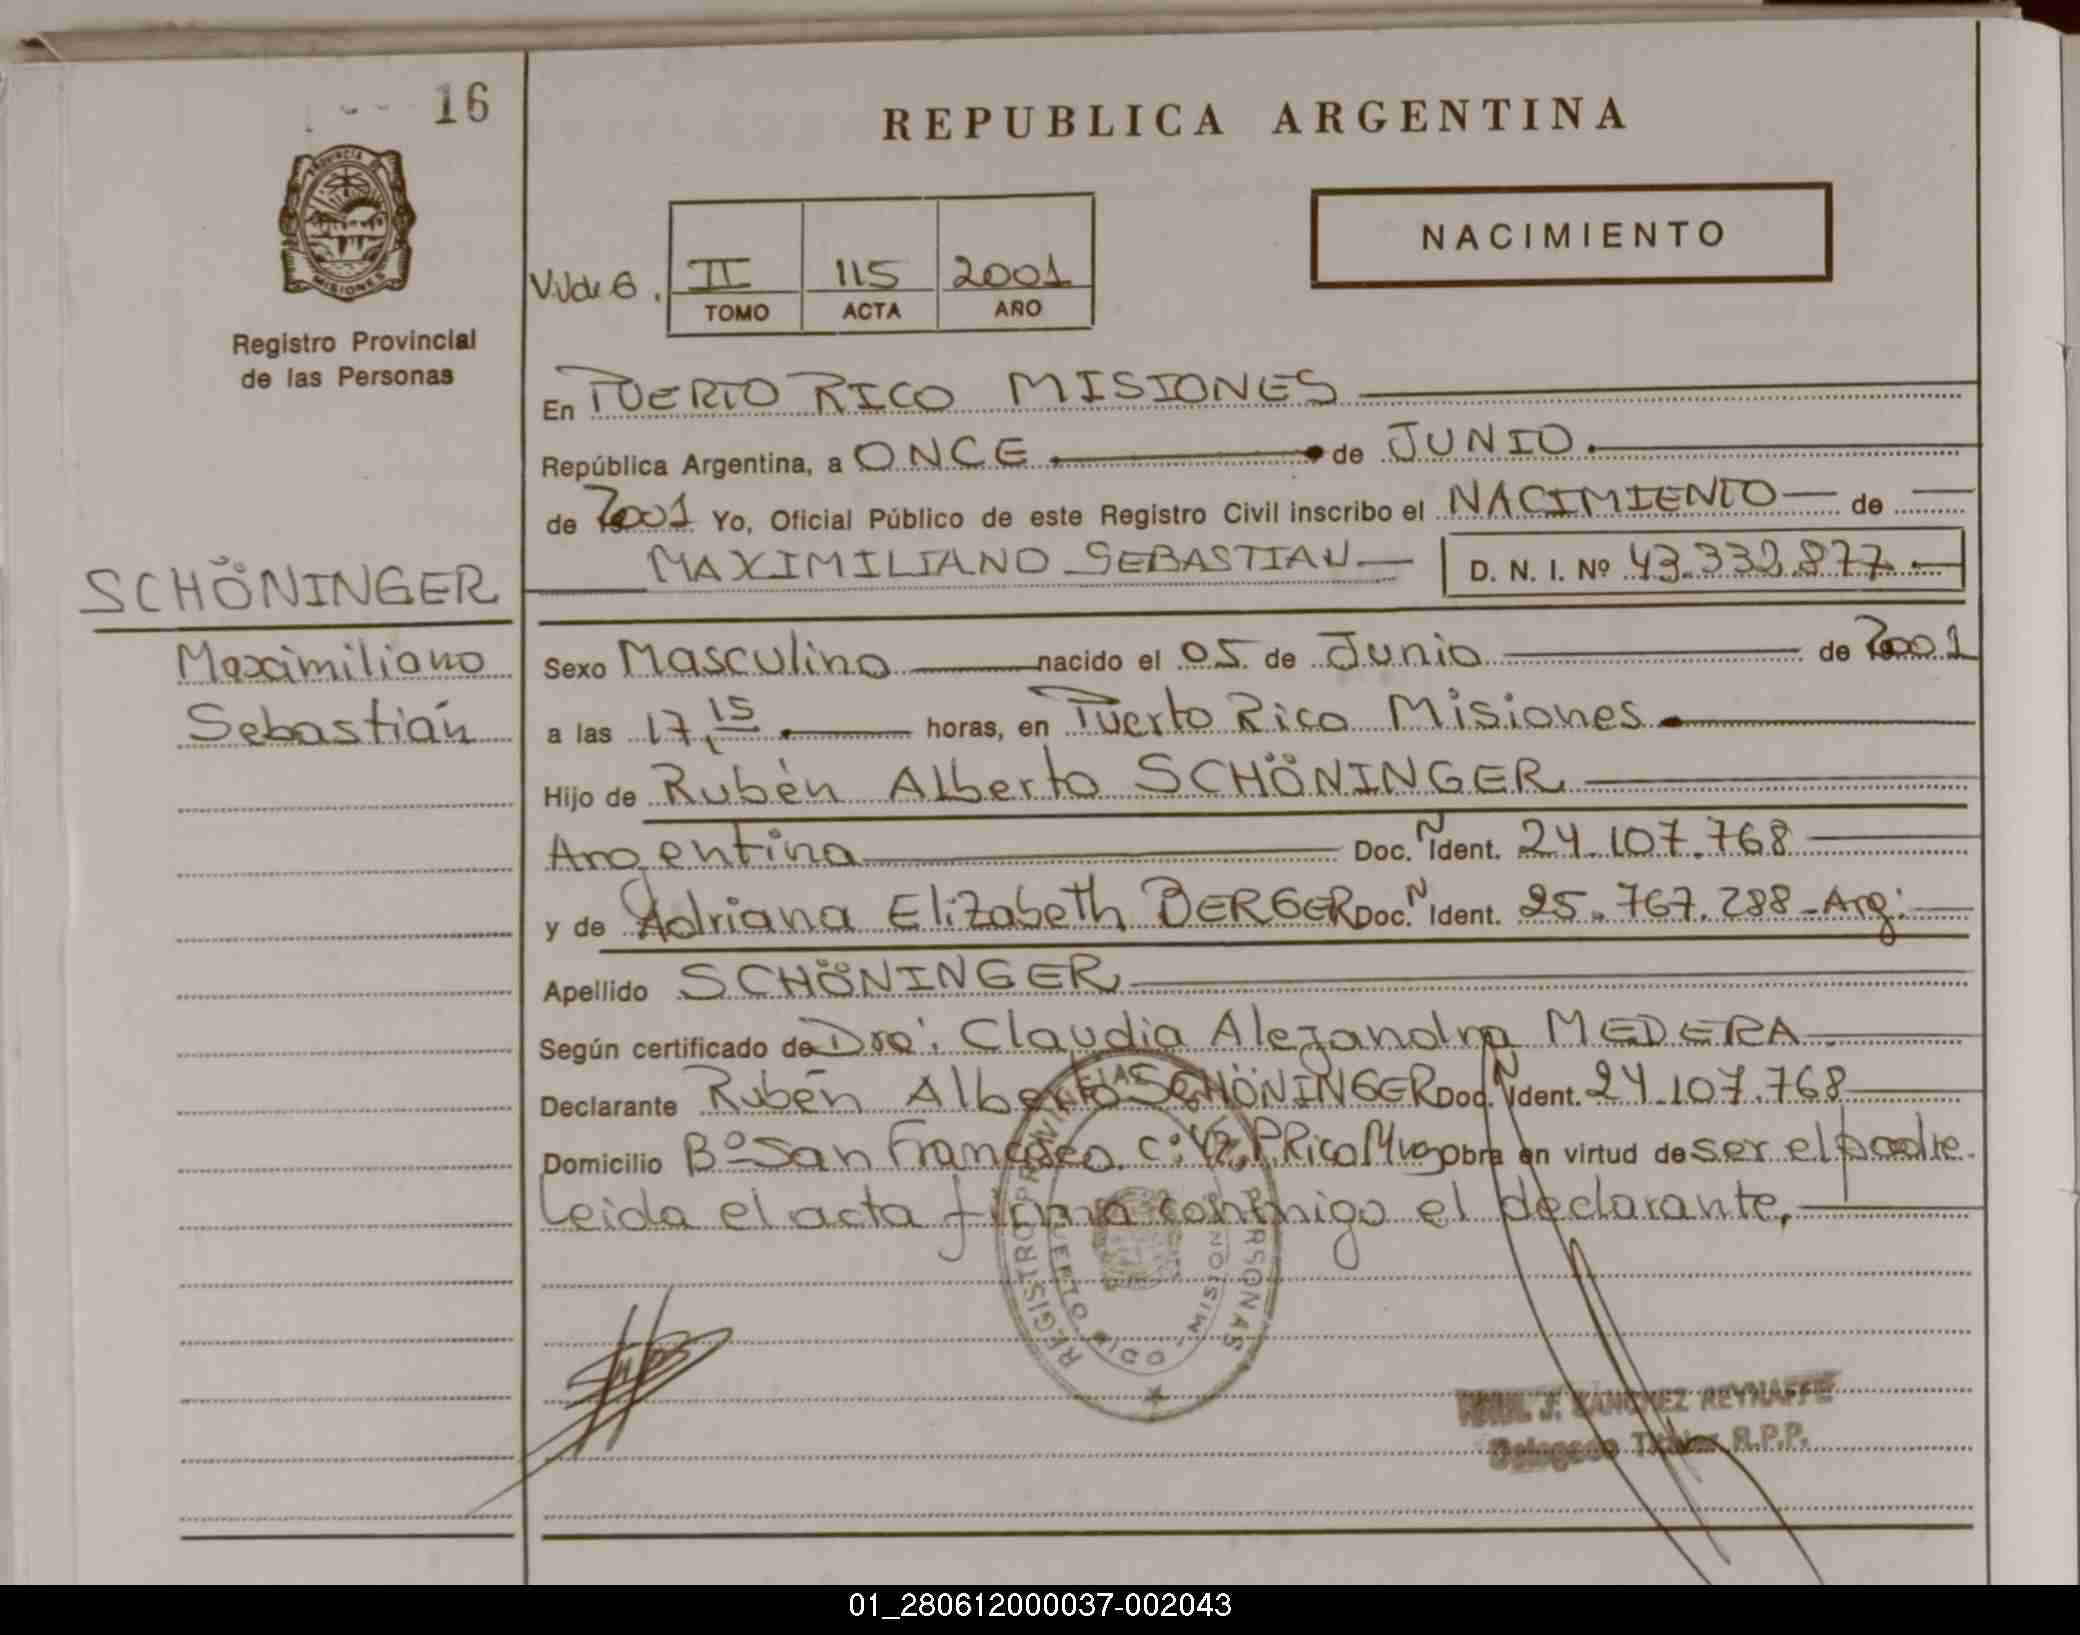 16
REPUBLICA ARGENTINA
PROVINCIA DE
MISIONES
NACIMIENTO
II 115 2001
TOMO ACTA AÑO
Registro Provincial
de las Personas
En PUERTO RICO MISIONES
República Argentina, a ONCE de JUNIO.
de 2001 Yo, Oficial Público de este Registro Civil inscribo el NACIMIENTO de
MAXIMILIANO SEBASTIAN D. N. I. Nº 43.332.877
SCHÖNINGER
Maximiliano
Sebastián
Sexo Masculino nacido el 05 de Junio de 2001
a las 17,15 horas, en Puerto Rico Misiones
Hijo de Rubén Alberto SCHÖNINGER
Argentina Doc. N Ident. 24.107.768
y de Adriana Elizabeth BERGER Doc. N Ident. 25.767.288 - Arg:
Apellido SCHÖNINGER
Según certificado de Dra: Claudia Alejandra MEDERA
Declarante Rubén Alberto SCHÖNINGER Doc. N Ident. 24.107.768
Domicilio Bº San Francisco C: P.Rico obra en virtud de ser el padre.
Leida el acta firma conmigo el declarante,
REGISTRO PROVINCIAL PERSONAS
PUERTO RICO - MISIONES
J. SANCHEZ REYNAFFE
Delegado Titular R.P.P.
01_280612000037-002043